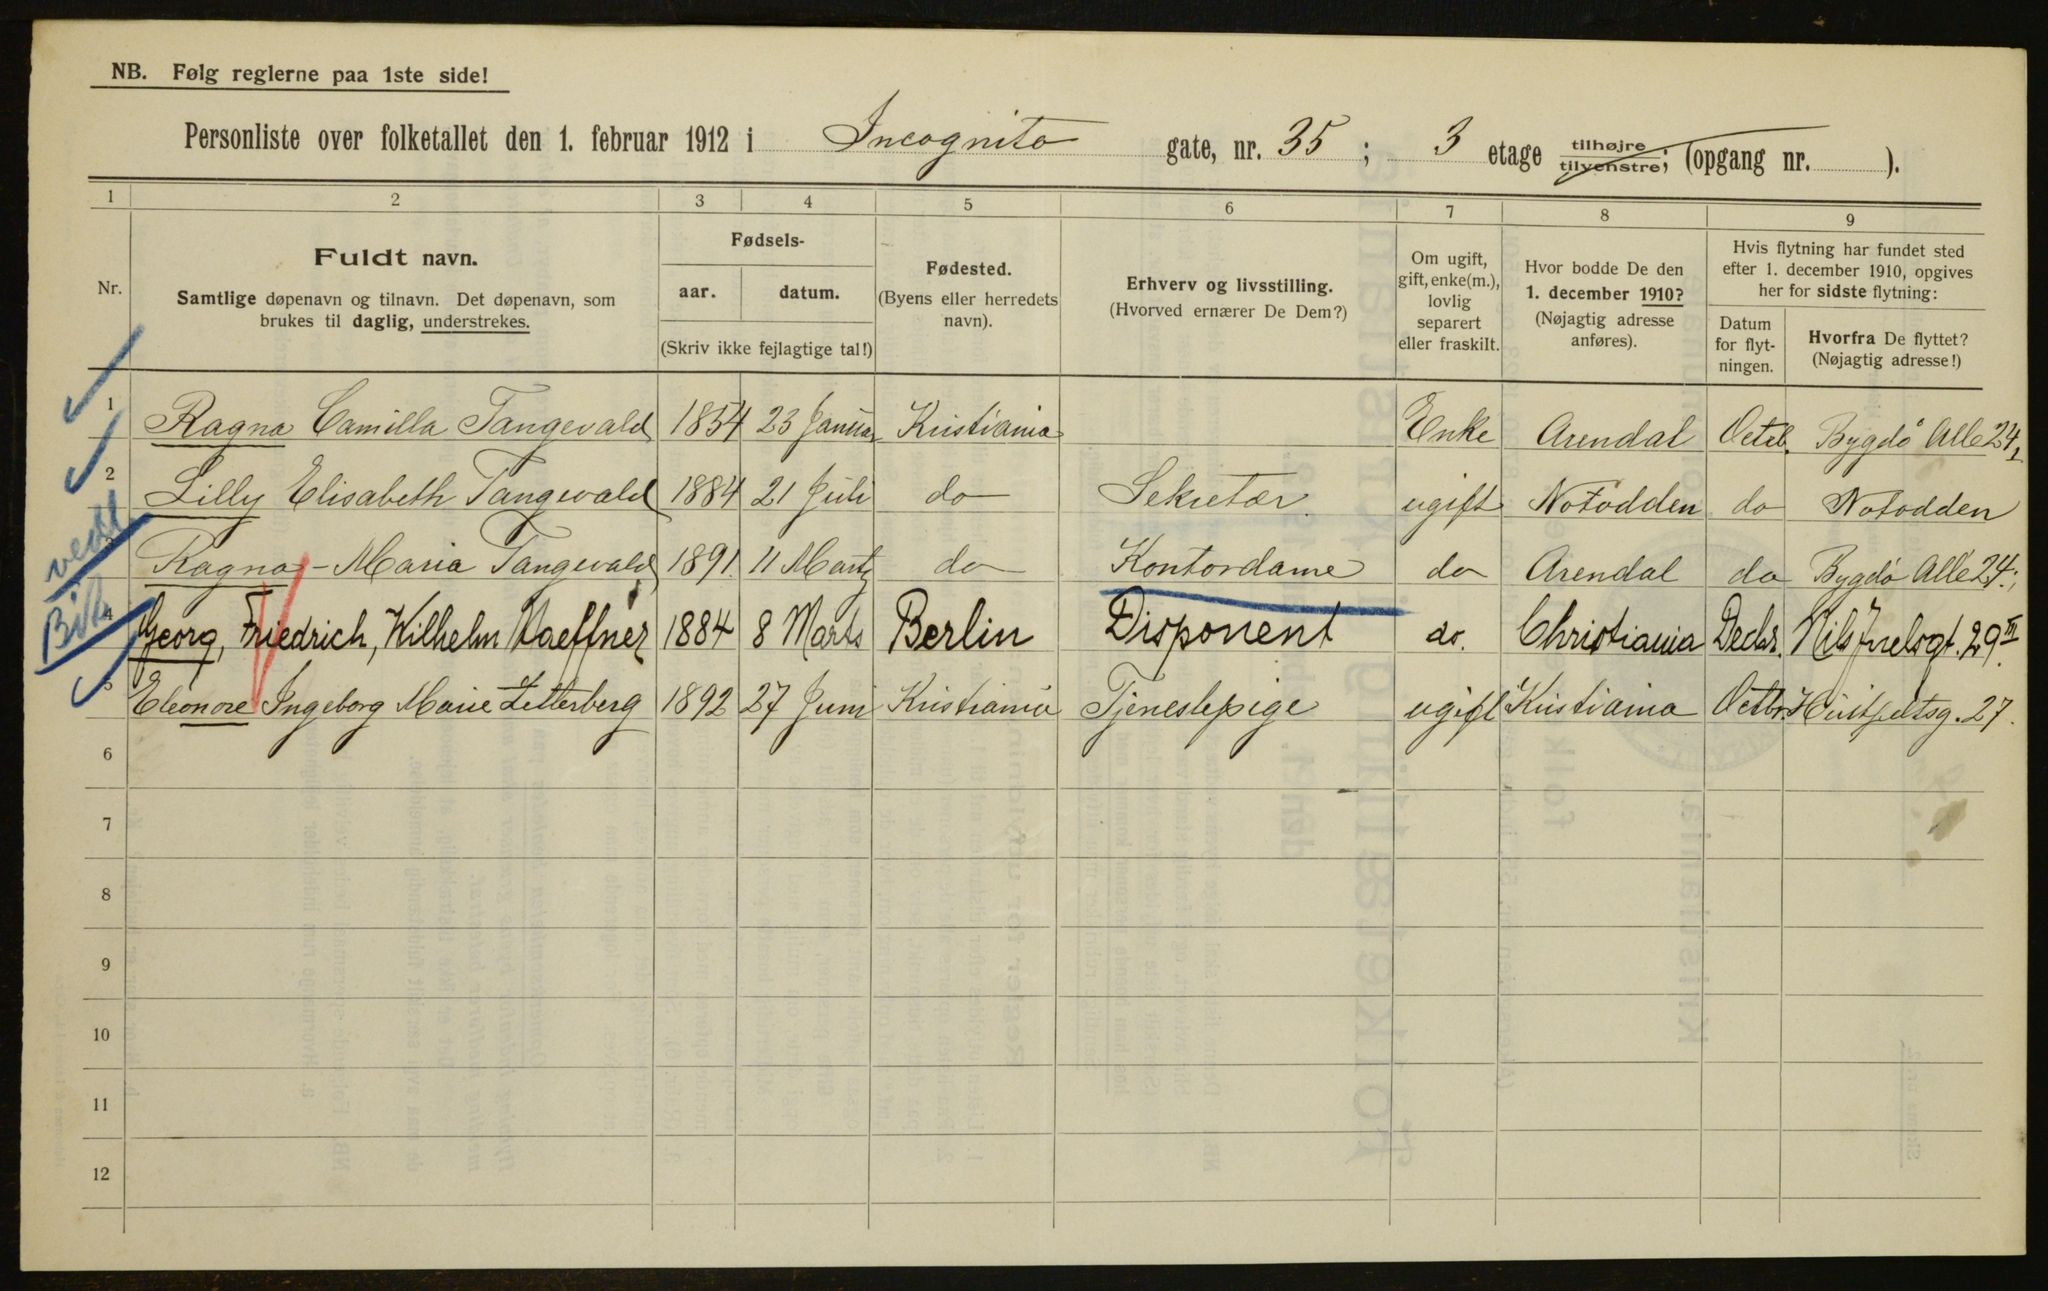 NB. Følg reglerne paa 1ste side!
Personliste over folketallet den 1. februar 1912 i Incognito gate, nr. 35; 3 etage tilhøjre tilvenstre; (opgang nr. ).
1 2 3 4 5 6 7 8 9
Nr.
Fuldt navn.
Samtlige døpenavn og tilnavn. Det døpenavn, som
brukes til daglig, understrekes.
Fødsels-
aar. datum.
(Skriv ikke fejlagtige tal!)
Fødested.
(Byens eller herredets
navn).
Erhverv og livsstilling.
(Hvorved ernærer De Dem?)
Om ugift,
gift, enke(m.),
lovlig
separert
eller fraskilt.
Hvor bodde De den
1. december 1910?
(Nøjagtig adresse
anføres).
Hvis flytning har fundet sted
efter 1. december 1910, opgives
her for sidste flytning:
Datum
for flyt-
ningen.
Hvorfra De flyttet?
(Nøjagtig adresse!)
1 Ragna Camilla Tangevald 1854 23 Januar Kristiania Enke Arendal Octob. Bygdø Alle 24
2 Lilly Elisabeth Tangevald 1884 21 Juli do Sekretær ugift Notodden do Notodden
3 Ragna - Maria Tangevald 1891. 11 Martz do Kontordame do Arendal do Bygdø Alle 24
4 Georg, Friedrich, Wilhelm Haeffner 1884 8 Marts Berlin Disponent do. Christiania Decbr. Nils Juelsgt. 29 III
5 Eleonore Ingeborg Marie Zetterberg 1892 27 Juni Kristiania Tjenestepige ugift Kristiania Octbr. Huitfeltsg. 27.
6
7
8
9
10
11
12